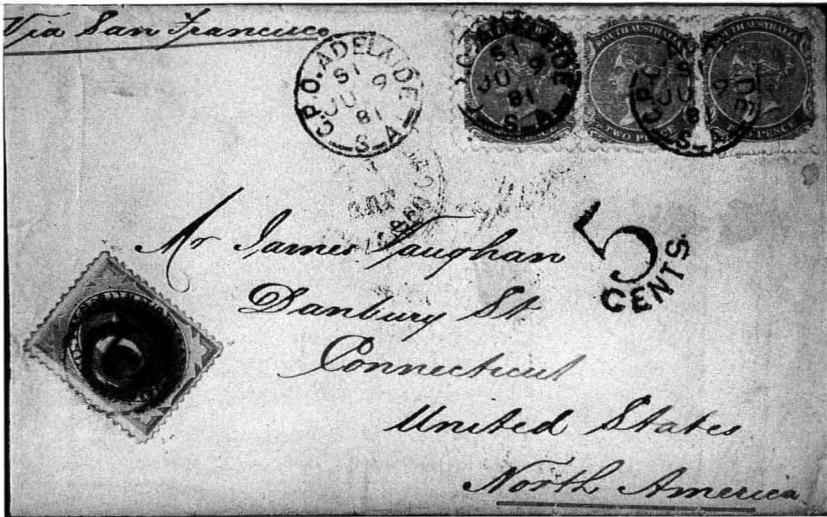 Via San Francisco
G.P.O. ADELAIDE
S1
JU 9
81
S–A
ADELAIDE
S1 9
JU
81
S–A
SOUTH AUSTRALIA
TWO PENCE
SOUTH AUSTRALIA
PENCE
G.P.O.
JU 9
81
S–A
Mr James Vaughan
5
CENTS.
Danbury St
Connecticut
United States
North America